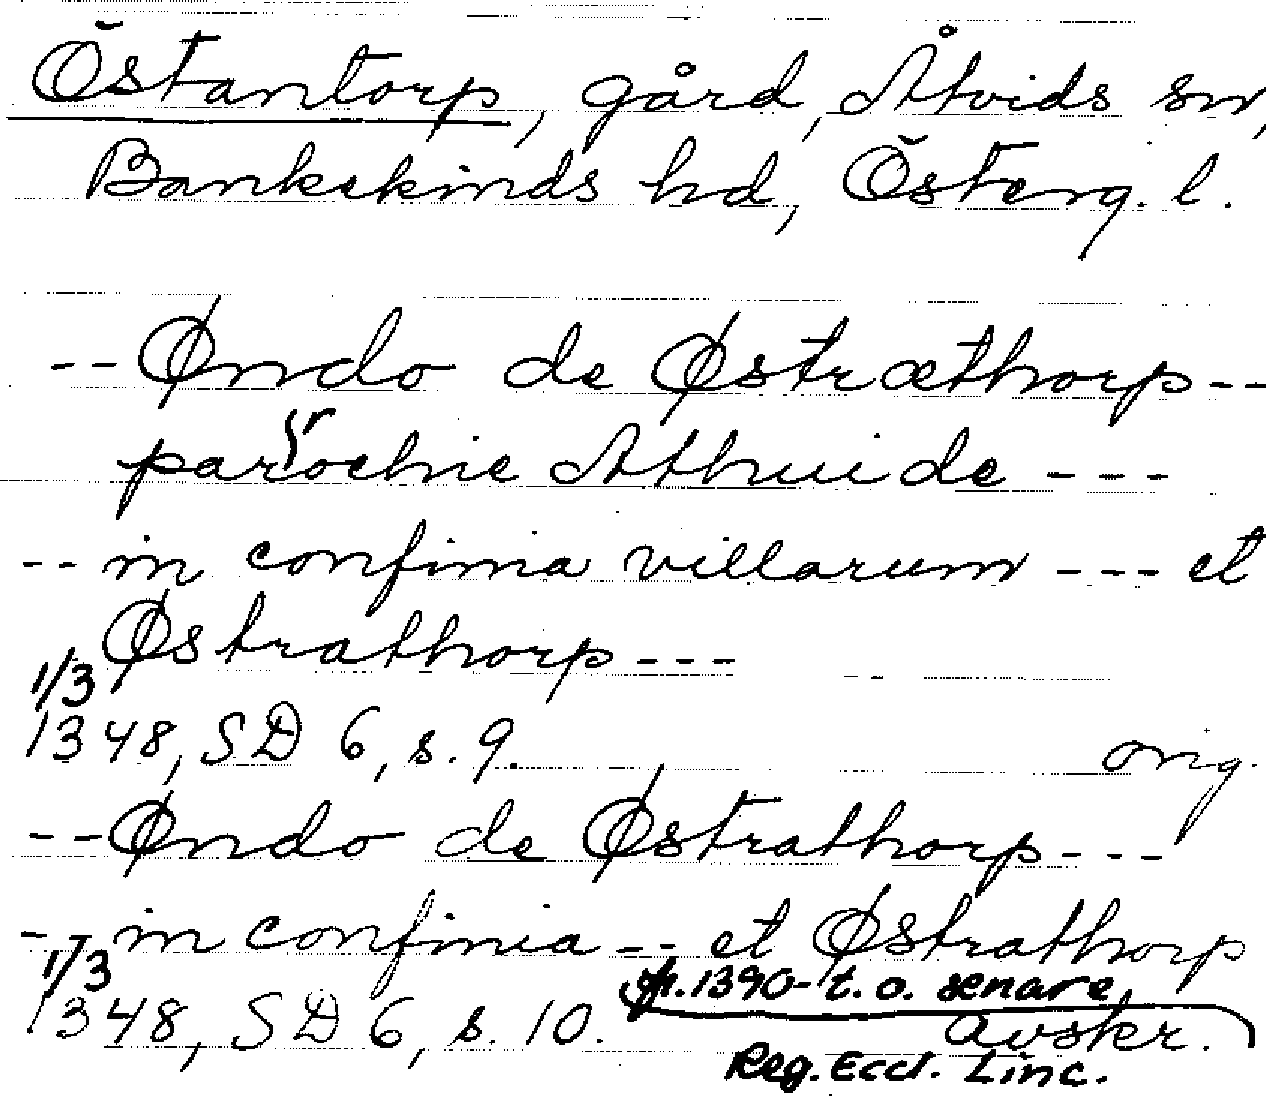 Östantorp, gård, Åtvids sn,
Bankekinds hd, Österg. l.
-- Øndo de Østræthorp --
parochie Athuide ---
-- in confinia villarum --- et
Østrathorp ---
1/3
1348, SD 6, s. 9. orig.
-- Øndo de Østrathorp ---
-- in confinia -- et Østrathorp
1/3 1390- t. o. senare
1348, SD 6, s. 10. avskr.
Reg. Eccl. Linc.